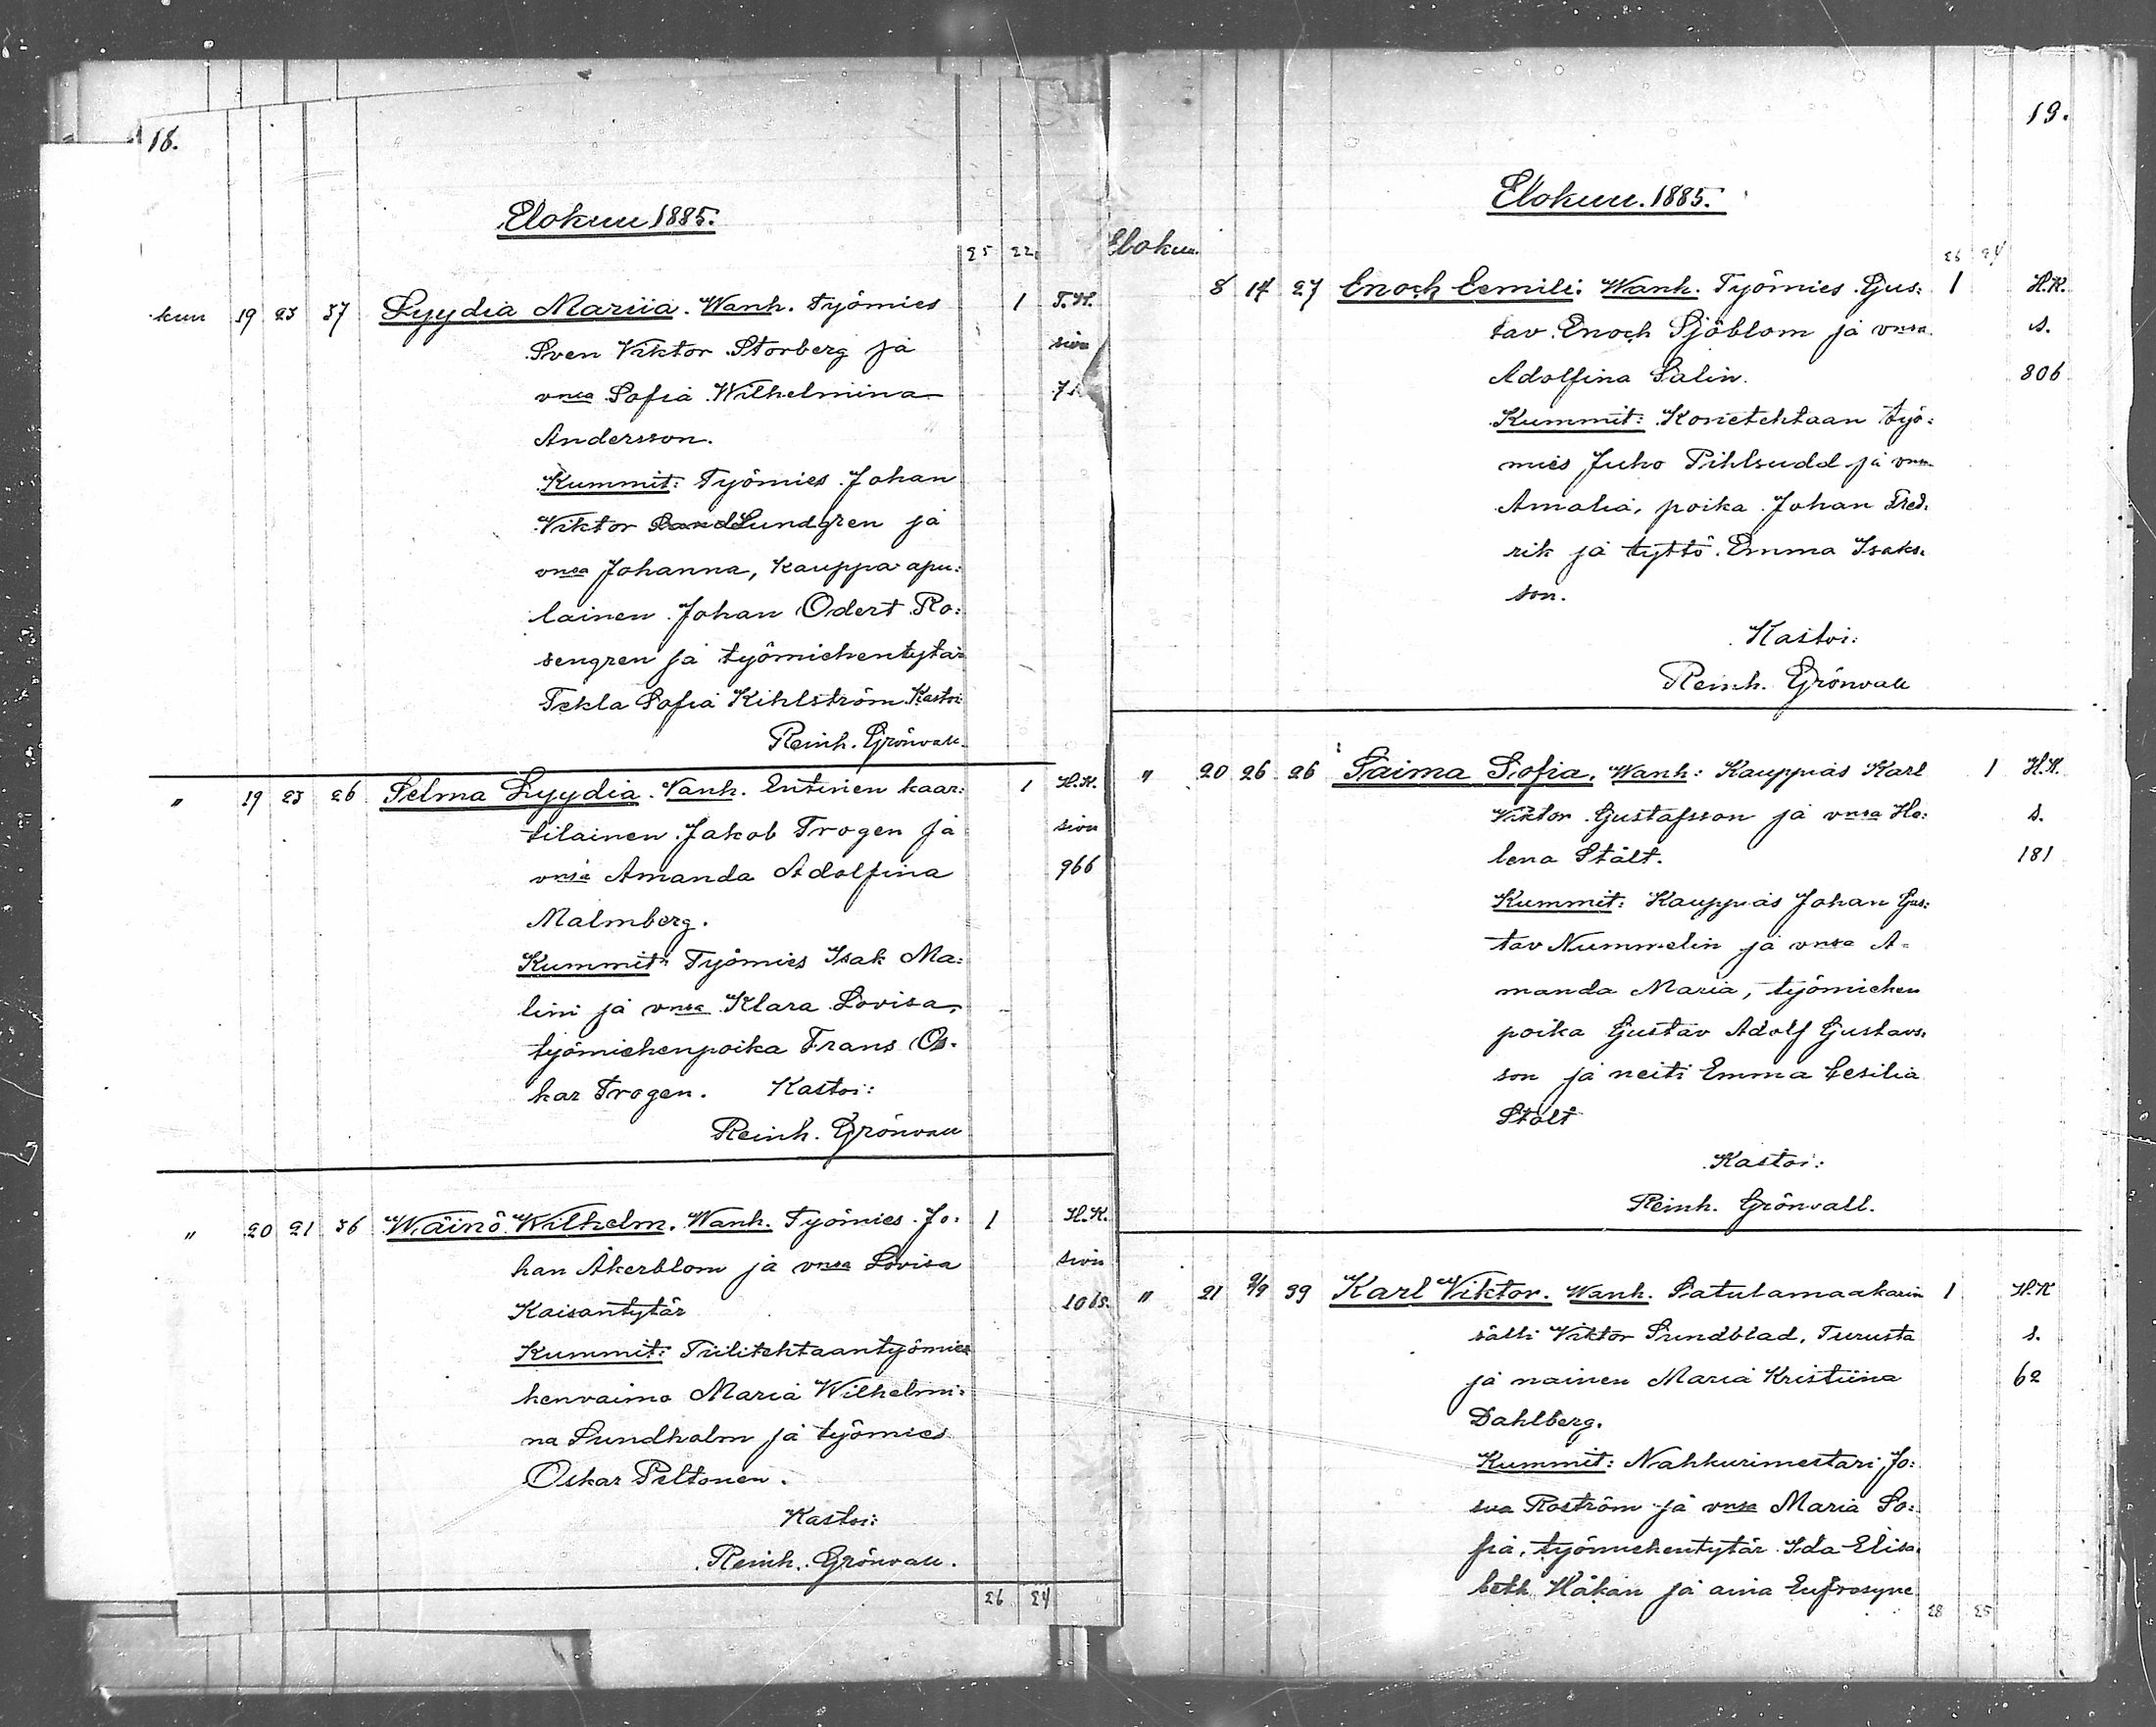 18.
Elokuu 1885.
25 22
kuu 19 23 37 Lyydia Mariia. Wanh. Työmies 1 T.K.
Sven Viktor Storberg ja sivu
vmsa Sofia Wilhelmina
Andersson.
Kummit: Työmies Johan
Viktor Lundgren ja
vmsa Johanna, kauppa apu:
lainen Johan Odert Ro:
sengren ja työmiehentytär
Tekla Sofia Kihlström Kastoi
Reinh. Grönvall.
" 19 23 26 Selma Lyydia. Vanh. Entinen kaar: 1 H.K.
tilainen Jakob Trogen ja sivu
vmsa Amanda Adolfina 966
Malmberg.
Kummit: Työmies Isak Ma:
lini ja vmsa Klara Lovisa,
työmiehenpoika Frans Os.
kar Trogen. Kastoi:
Reinh. Grönvall
" 20 21 36 Wäinö Wilhelm. Wanh. Työmies Jo: 1 H.K.
han Åkerblom ja vmsa Lovisa sivu
Kaisantytär 1065.
Kummit: Tiilitehtaantyömie
henvaimo Maria Wilhelmi:
na Sundholm ja työmies
Oskar Peltonen.
Kastoi:
Reinh. Grönvall.
26 24
19.
Elokuu. 1885.
Elokuu. 26 24
8 14 27 Enoch Eemili. Wanh. Työmies Gus: 1 H.K.
tav Enoch Sjöblom ja vmsa s.
Adolfina Salin. 806
Kummit: Konetehtaan työ:
mies Juho Pihlsudd ja vmsa
Amalia, poika Johan Fred.
rik ja tyttö Emma Isaks.
son.
Kastoi:
Reinh. Grönvall
" 20 26 26 Saima Sofia. Wanh: Kauppias Karl 1 H.K.
Viktor Gustafsson ja vmsa He:
s.
lena Stålt. 181
Kummit: Kauppias Johan Gus:
tav Nummelin ja vmsa A=
manda Maria, työmiehen
poika Gustav Adolf Gustavs.
son ja neiti Emma Cesilia
Stålt
Kastoi:
Reinh. Grönvall.
" 21 2/9 39 Karl Viktor. Wanh. Satulamaakarin 1 H.K
sälli Viktor Sundblad, Turusta s.
ja nainen Maria Kristiina 62
Dahlberg.
Kummit: Nahkurimestari Jo:
sua Roström ja vmsa Maria So:
fia, työmiehentytär Ida Elisa.
beth Håkan ja aina Eufrosyne
28 25